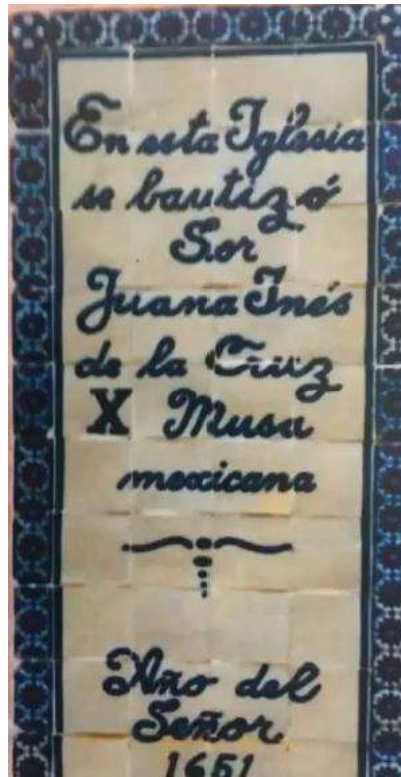 En esta Iglesia
se bautizó
Sor
Juana Inés
de la Cruz
X Musa
mexicana
Año del
Señor
1651